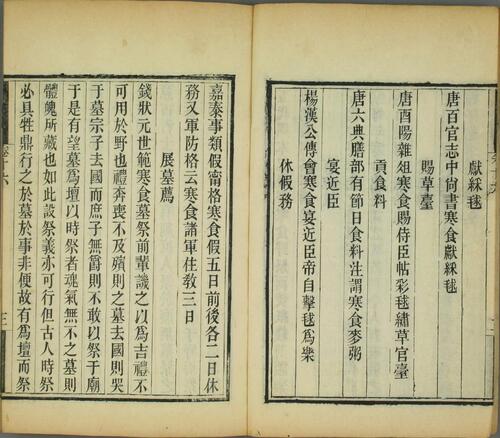 獻綵毬
唐百官志中尙書寒食獻綵毬
賜草臺
唐酉陽雜俎寒食賜侍臣帖彩毬繡草官臺
貢食料
唐六典膳部有節日食料注謂寒食麥粥
宴近臣
楊漢公傳會寒食宴近臣帝自擊毬爲樂
休假務
嘉泰事類假甯格寒食假五日前後各二日休
務又軍防格云寒食諸軍住敎三日
展墓薦
錢狀元世範寒食墓祭前輩譏之以爲吉禮不
可用於野也禮奔喪不及殯則之墓去國則哭
于墓宗子去國而庶子無爵則不敢以祭于廟
于是有望墓爲壇以時祭者魂氣無不之墓則
體魄所藏也如此說祭義亦可行但古人時祭
必具牲鼎行之於墓於事非便故有爲壇而祭